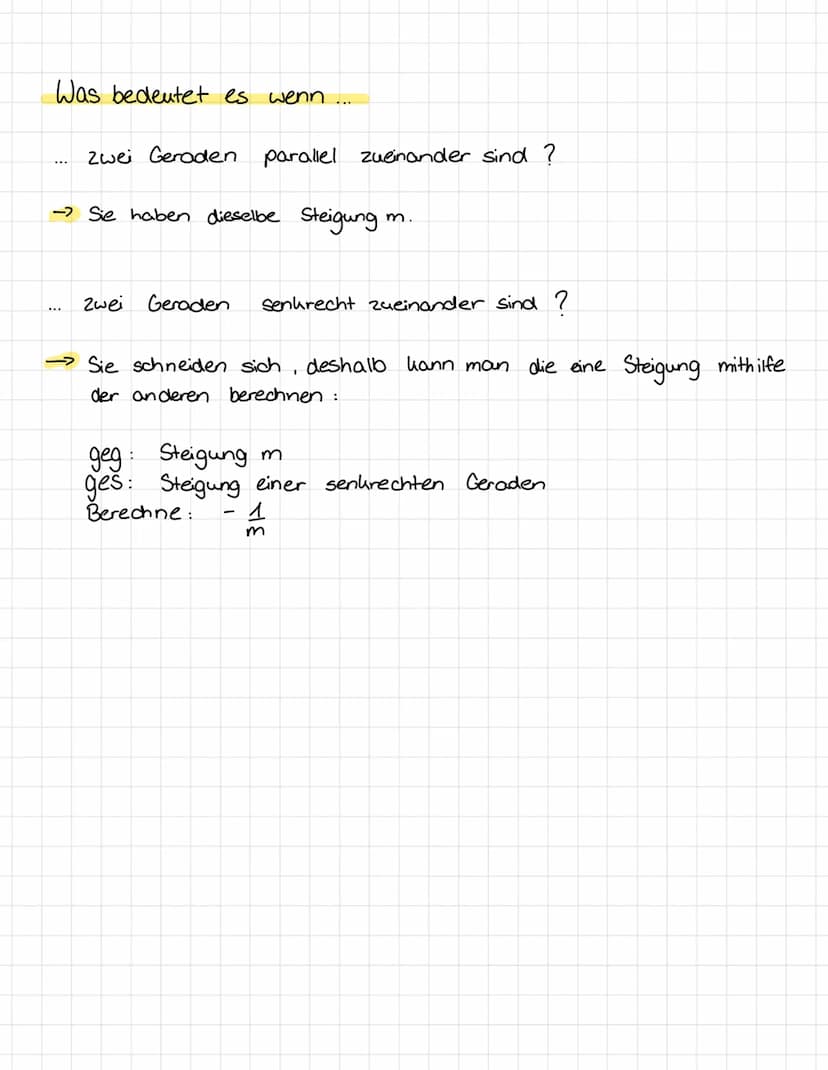 Was bedeutet es wenn ...
... zwei Geraden parallel zueinander sind ?
→ Sie haben dieselbe Steigung m.
... zwei Geraden senkrecht zueinander sind ?
→ Sie schneiden sich , deshalb kann man die eine Steigung mithilfe
der anderen berechnen :
geg : Steigung m
ges : Steigung einer senkrechten Geraden
Berechne : - 1
m